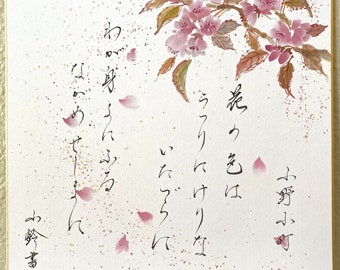 小野小町
花の色は
うつりにけりな
いたづらに
わが身よにふる
ながめせしまに
小鈴書